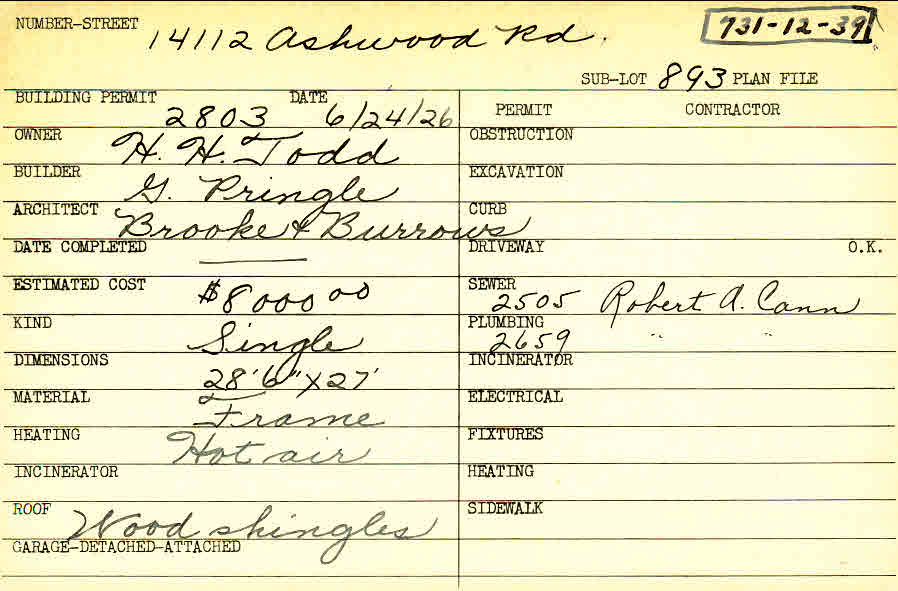 NUMBER-STREET 14112 Ashwood Rd. 731-12-39
SUB-LOT 893 PLAN FILE
BUILDING PERMIT 2803 DATE 6/24/26 PERMIT CONTRACTOR
OWNER H. H. Todd OBSTRUCTION
BUILDER G. Pringle EXCAVATION
ARCHITECT Brooke & Burrows CURB
DATE COMPLETED —— DRIVEWAY O.K.
ESTIMATED COST $8000 00 SEWER 2505 Robert A. Cann
KIND Single PLUMBING 2659 " "
DIMENSIONS 28'6" X 27' INCINERATOR
MATERIAL Frame ELECTRICAL
HEATING Hot air FIXTURES
INCINERATOR HEATING
ROOF Wood shingles SIDEWALK
GARAGE-DETACHED-ATTACHED